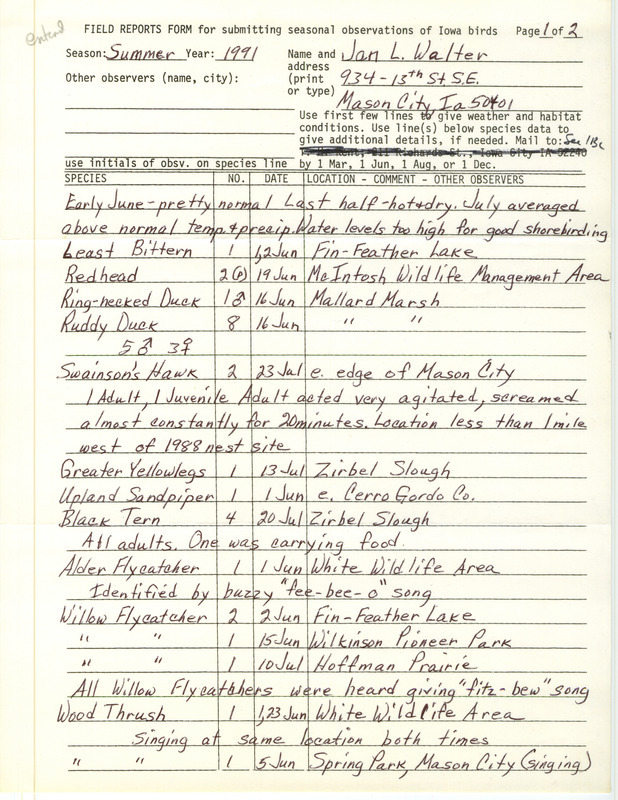 entered
FIELD REPORTS FORM for submitting seasonal observations of Iowa birds Page 1 of 2
Season: Summer Year: 1991 Name and Jan L. Walter
address
Other observers (name, city): (print 934-13th St. S.E.
or type)
Mason City, Ia 50401
Use first few lines to give weather and habitat
conditions. Use line(s) below species data to
give additional details, if needed. Mail to:
Richards St., Iowa City IA 52240
use initials of obsv. on species line by 1 Mar, 1 Jun, 1 Aug, or 1 Dec.
SPECIES NO. DATE LOCATION - COMMENT - OTHER OBSERVERS
Early June-pretty normal Last half-hot&dry. July averaged
above normal temp.&precip. Water levels too high for good shorebirding
Least Bittern 1 1,2 Jun Fin-Feather Lake
Redhead 2(P) 19 Jun McIntosh Wildlife Management Area
Ring-necked Duck 1♂ 16 Jun Mallard Marsh
Ruddy Duck 8 16 Jun " "
5♂ 3♀
Swainson's Hawk 2 23 Jul e. edge of Mason City
1 Adult, 1 Juvenile Adult acted very agitated, screamed
almost constantly for 20minutes. Location less than 1 mile
west of 1988 nest site
Greater Yellowlegs 1 13 Jul Zirbel Slough
Upland Sandpiper 1 1 Jun e. Cerro Gordo Co.
Black Tern 4 20 Jul Zirbel Slough
All adults. One was carrying food.
Alder Flycatcher 1 1 Jun White Wildlife Area
Identified by buzzy "fee-bee-o" song
Willow Flycatcher 2 2 Jun Fin-Feather Lake
" " 1 15 Jun Wilkinson Pioneer Park
" " 1 10 Jul Hoffman Prairie
All Willow Flycatchers were heard giving "fitz-bew" song
Wood Thrush 1 1,23 Jun White Wildlife Area
Singing at same location both times
" " 1 5 Jun Spring Park, Mason City (singing)